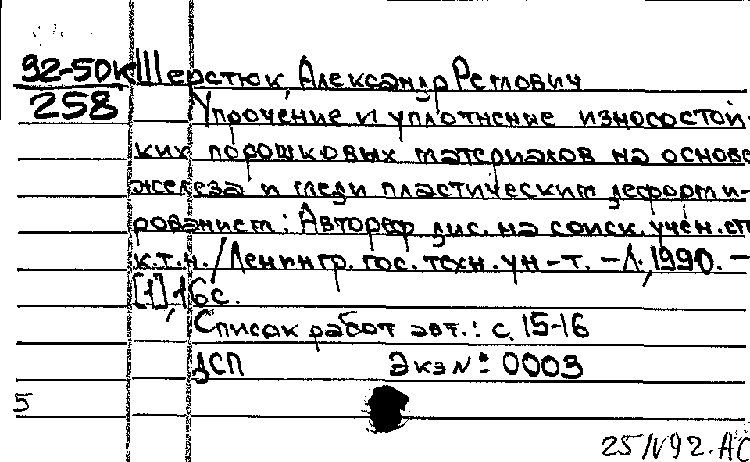 92-50К Шерстюк, Александр Ретлович
258 Упрочение и уплотнение износостой-
ких порошковых материалов на основе
железа и меди пластическим деформи-
рованием: Автореф. дис. на соиск. учен. ст.
к.т.н. / Ленингр. гос. техн. ун-т. – Л., 1990. –
[1], 16 с.
Список работ авт.: с. 15-16
ДСП Экз № 0003
5
25/IV92. АС